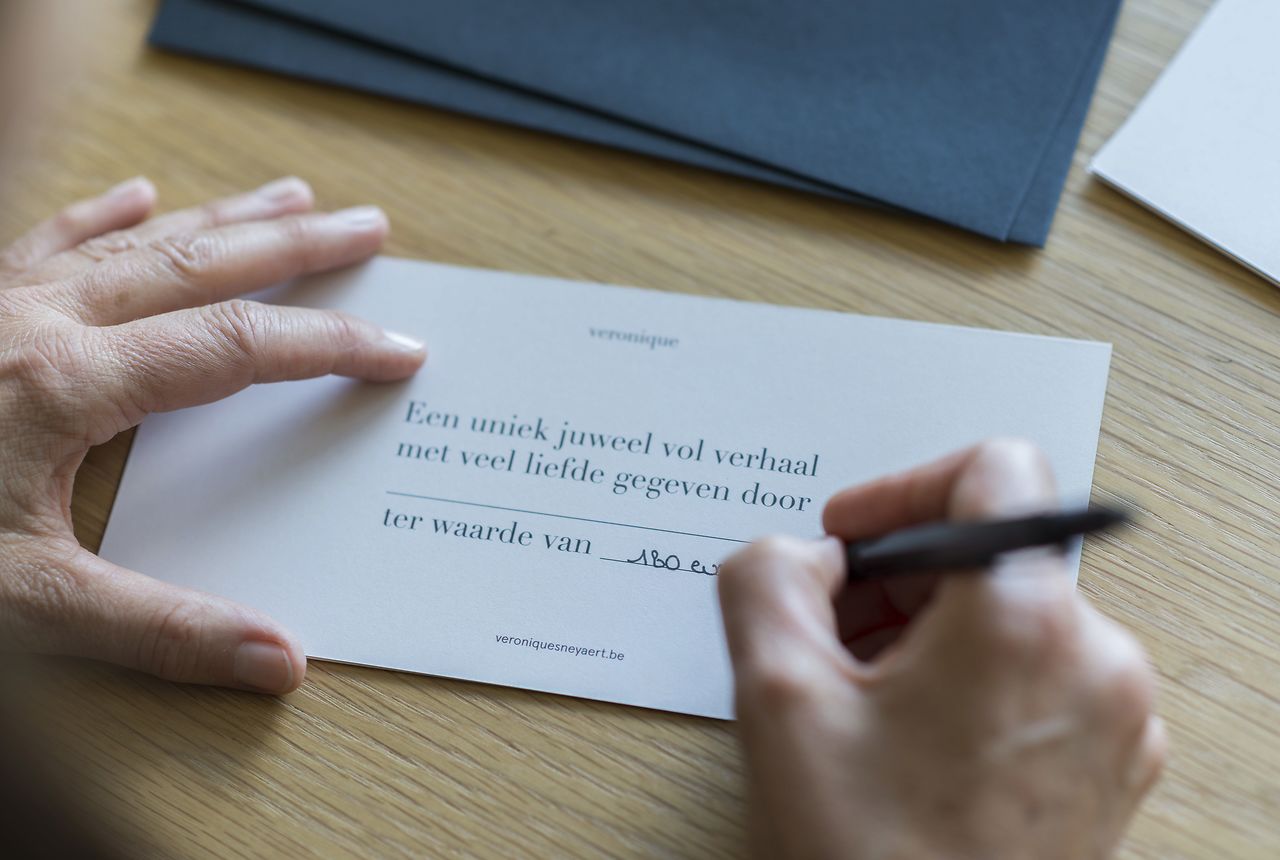 veronique
Een uniek juweel vol verhaal
met veel liefde gegeven door
ter waarde van 180
veroniquesneyaert.be